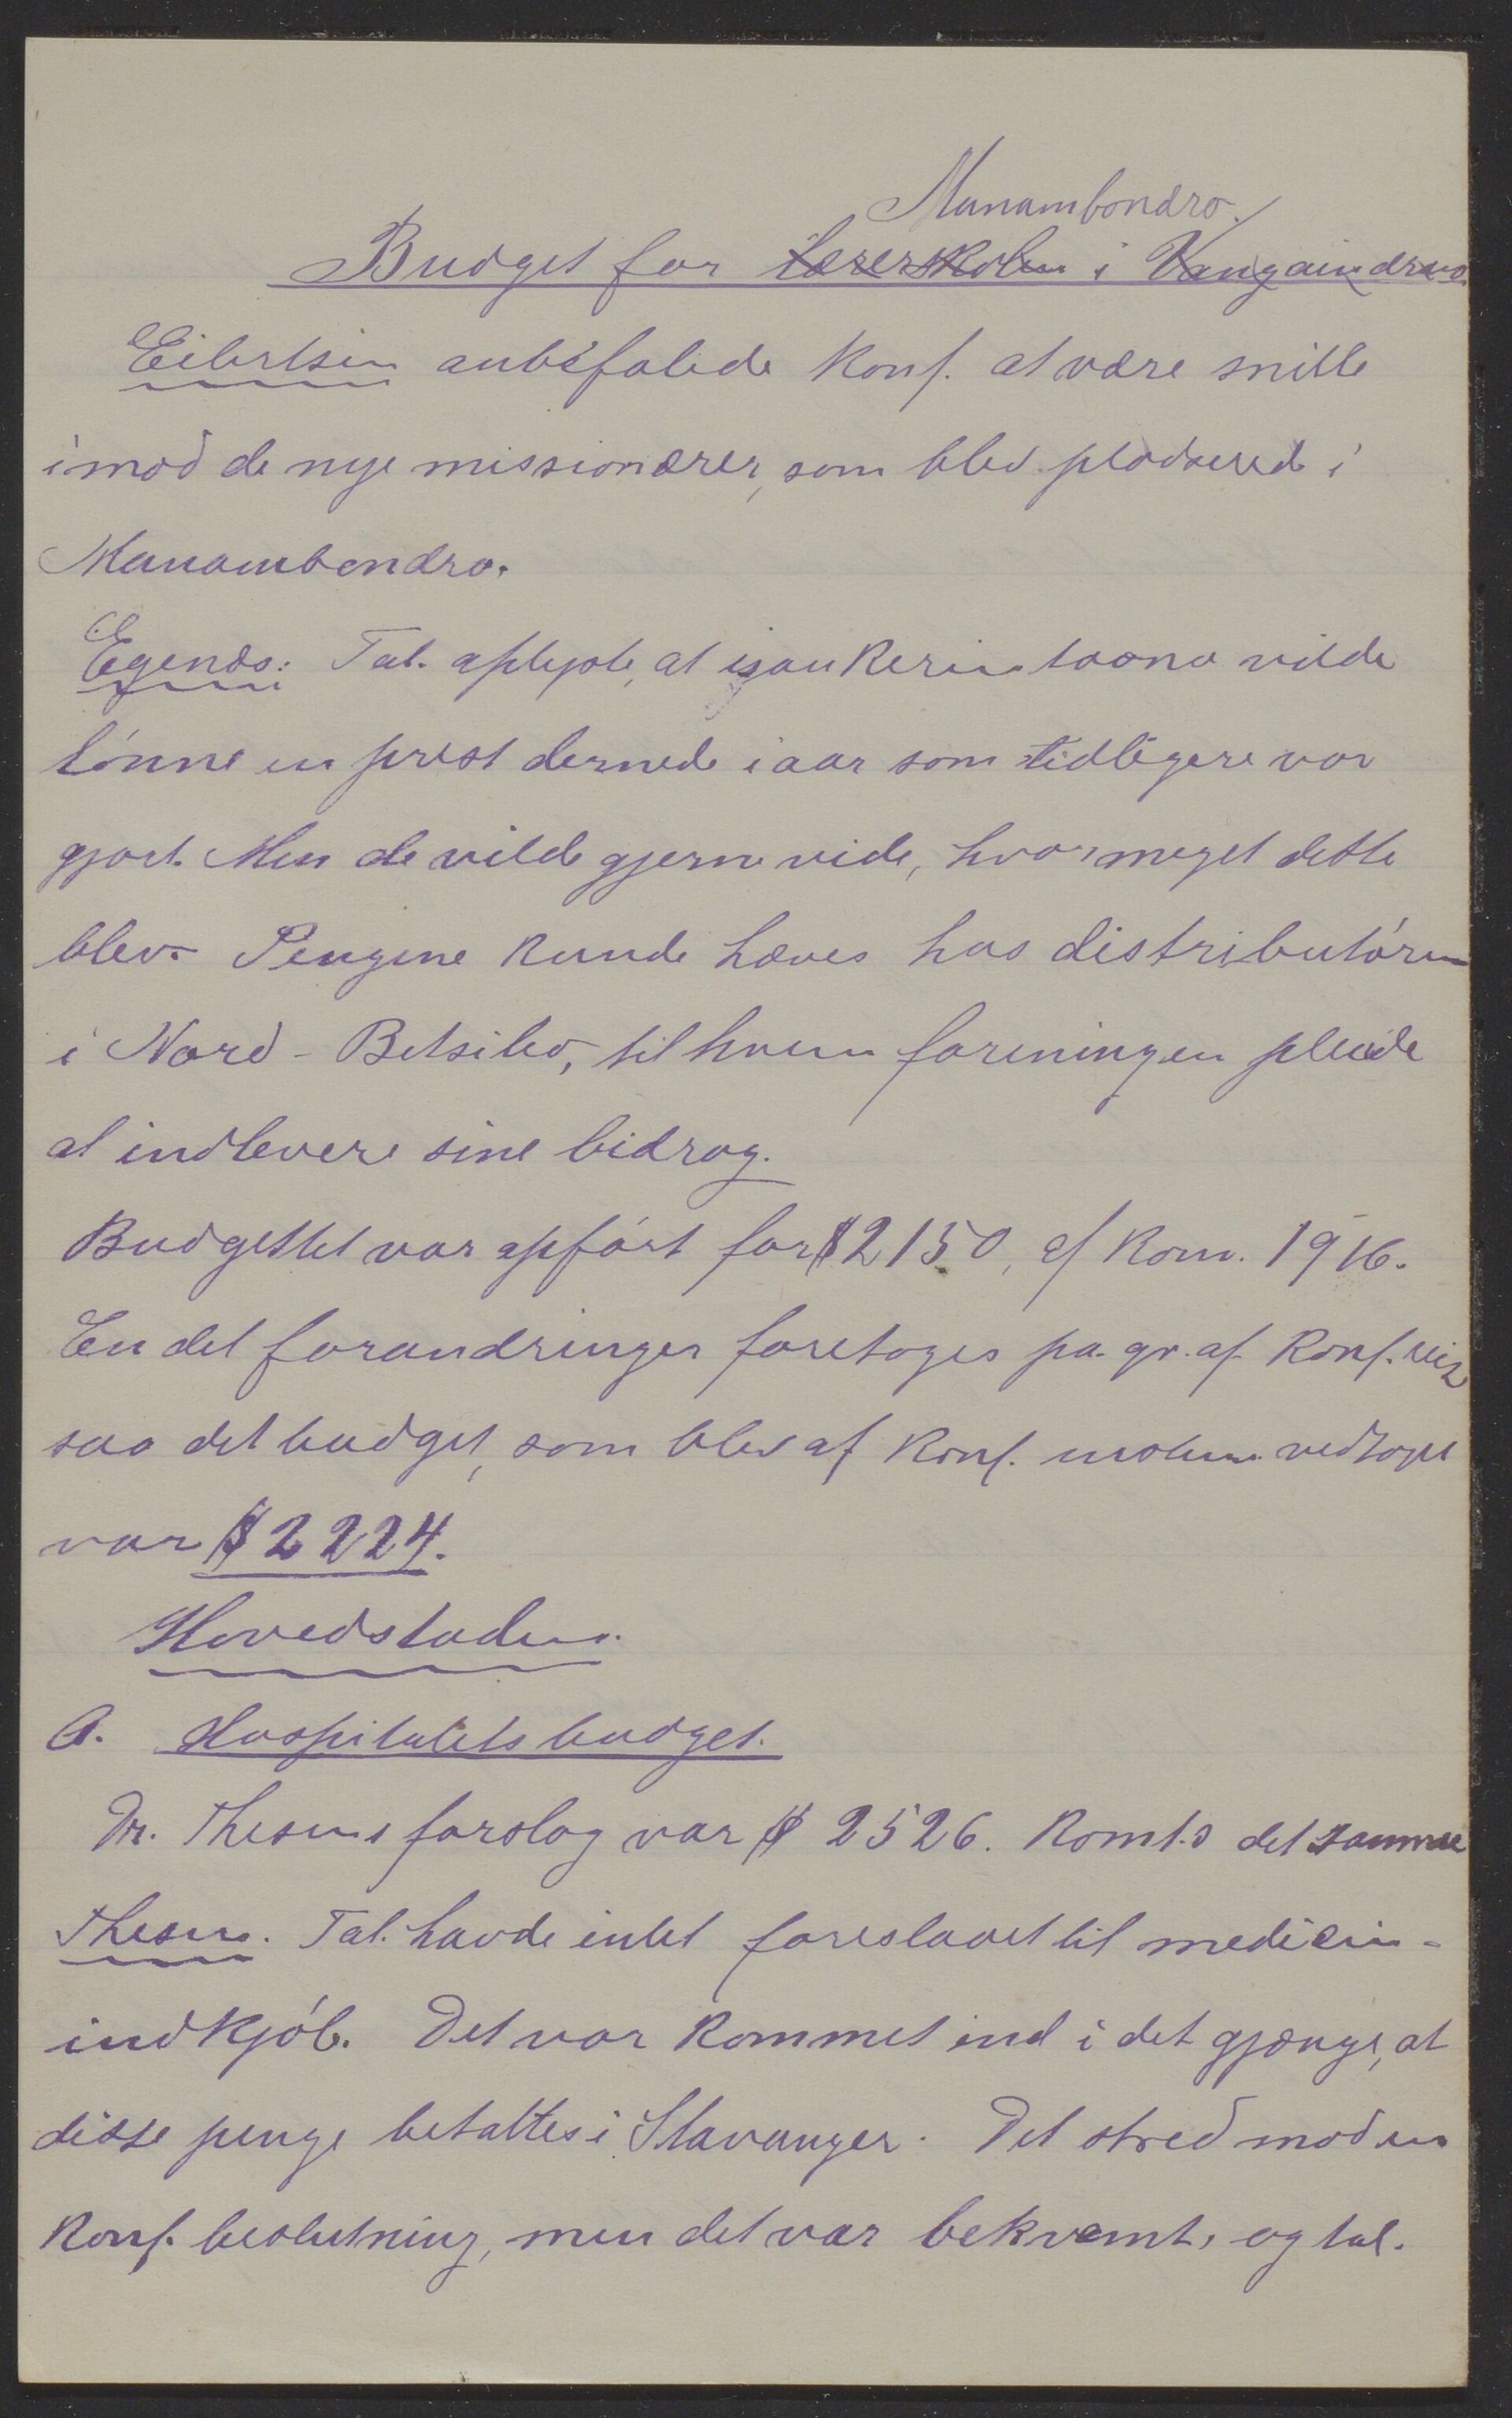 Manambondro.
Budget for Lærerskolen i Vangaindrano
Eilertsen anbefalede Konf. at være snille
imod de nye missionærer, som blev pladserede i
Manambondro.
Egenæs: Tal. oplyste, at isan Kerintaona vilde
lønne en prest dernede iaar som tidligere var
gjort. Men de vilde gjerne vide, hvormeget dette
blev. Pengene kunde hæves hos distributøren
i Nord-Betsileo, til hvem foreningen pleiede
at indlevere sine bidrag.
Budgettet var opført for $2150, af Kom. 1916.
En del forandringer foretoges pa. gr. af Konf.reise
saa det budget, som blev af Konf. vedtaget
var $2224.
Hovedstaden.
A. Hospitalets budget.
Dr. Thesens forslag var $ 2526. Komt.s det samme
Thesen. Tal. havde intet foreslaaet til medicin-
indkjøb. Det var kommet ind i det gjænge, at
disse penge betaltes i Stavanger. Det stred mod en
Konf. beslutning, men det var bekvemt, og tal.